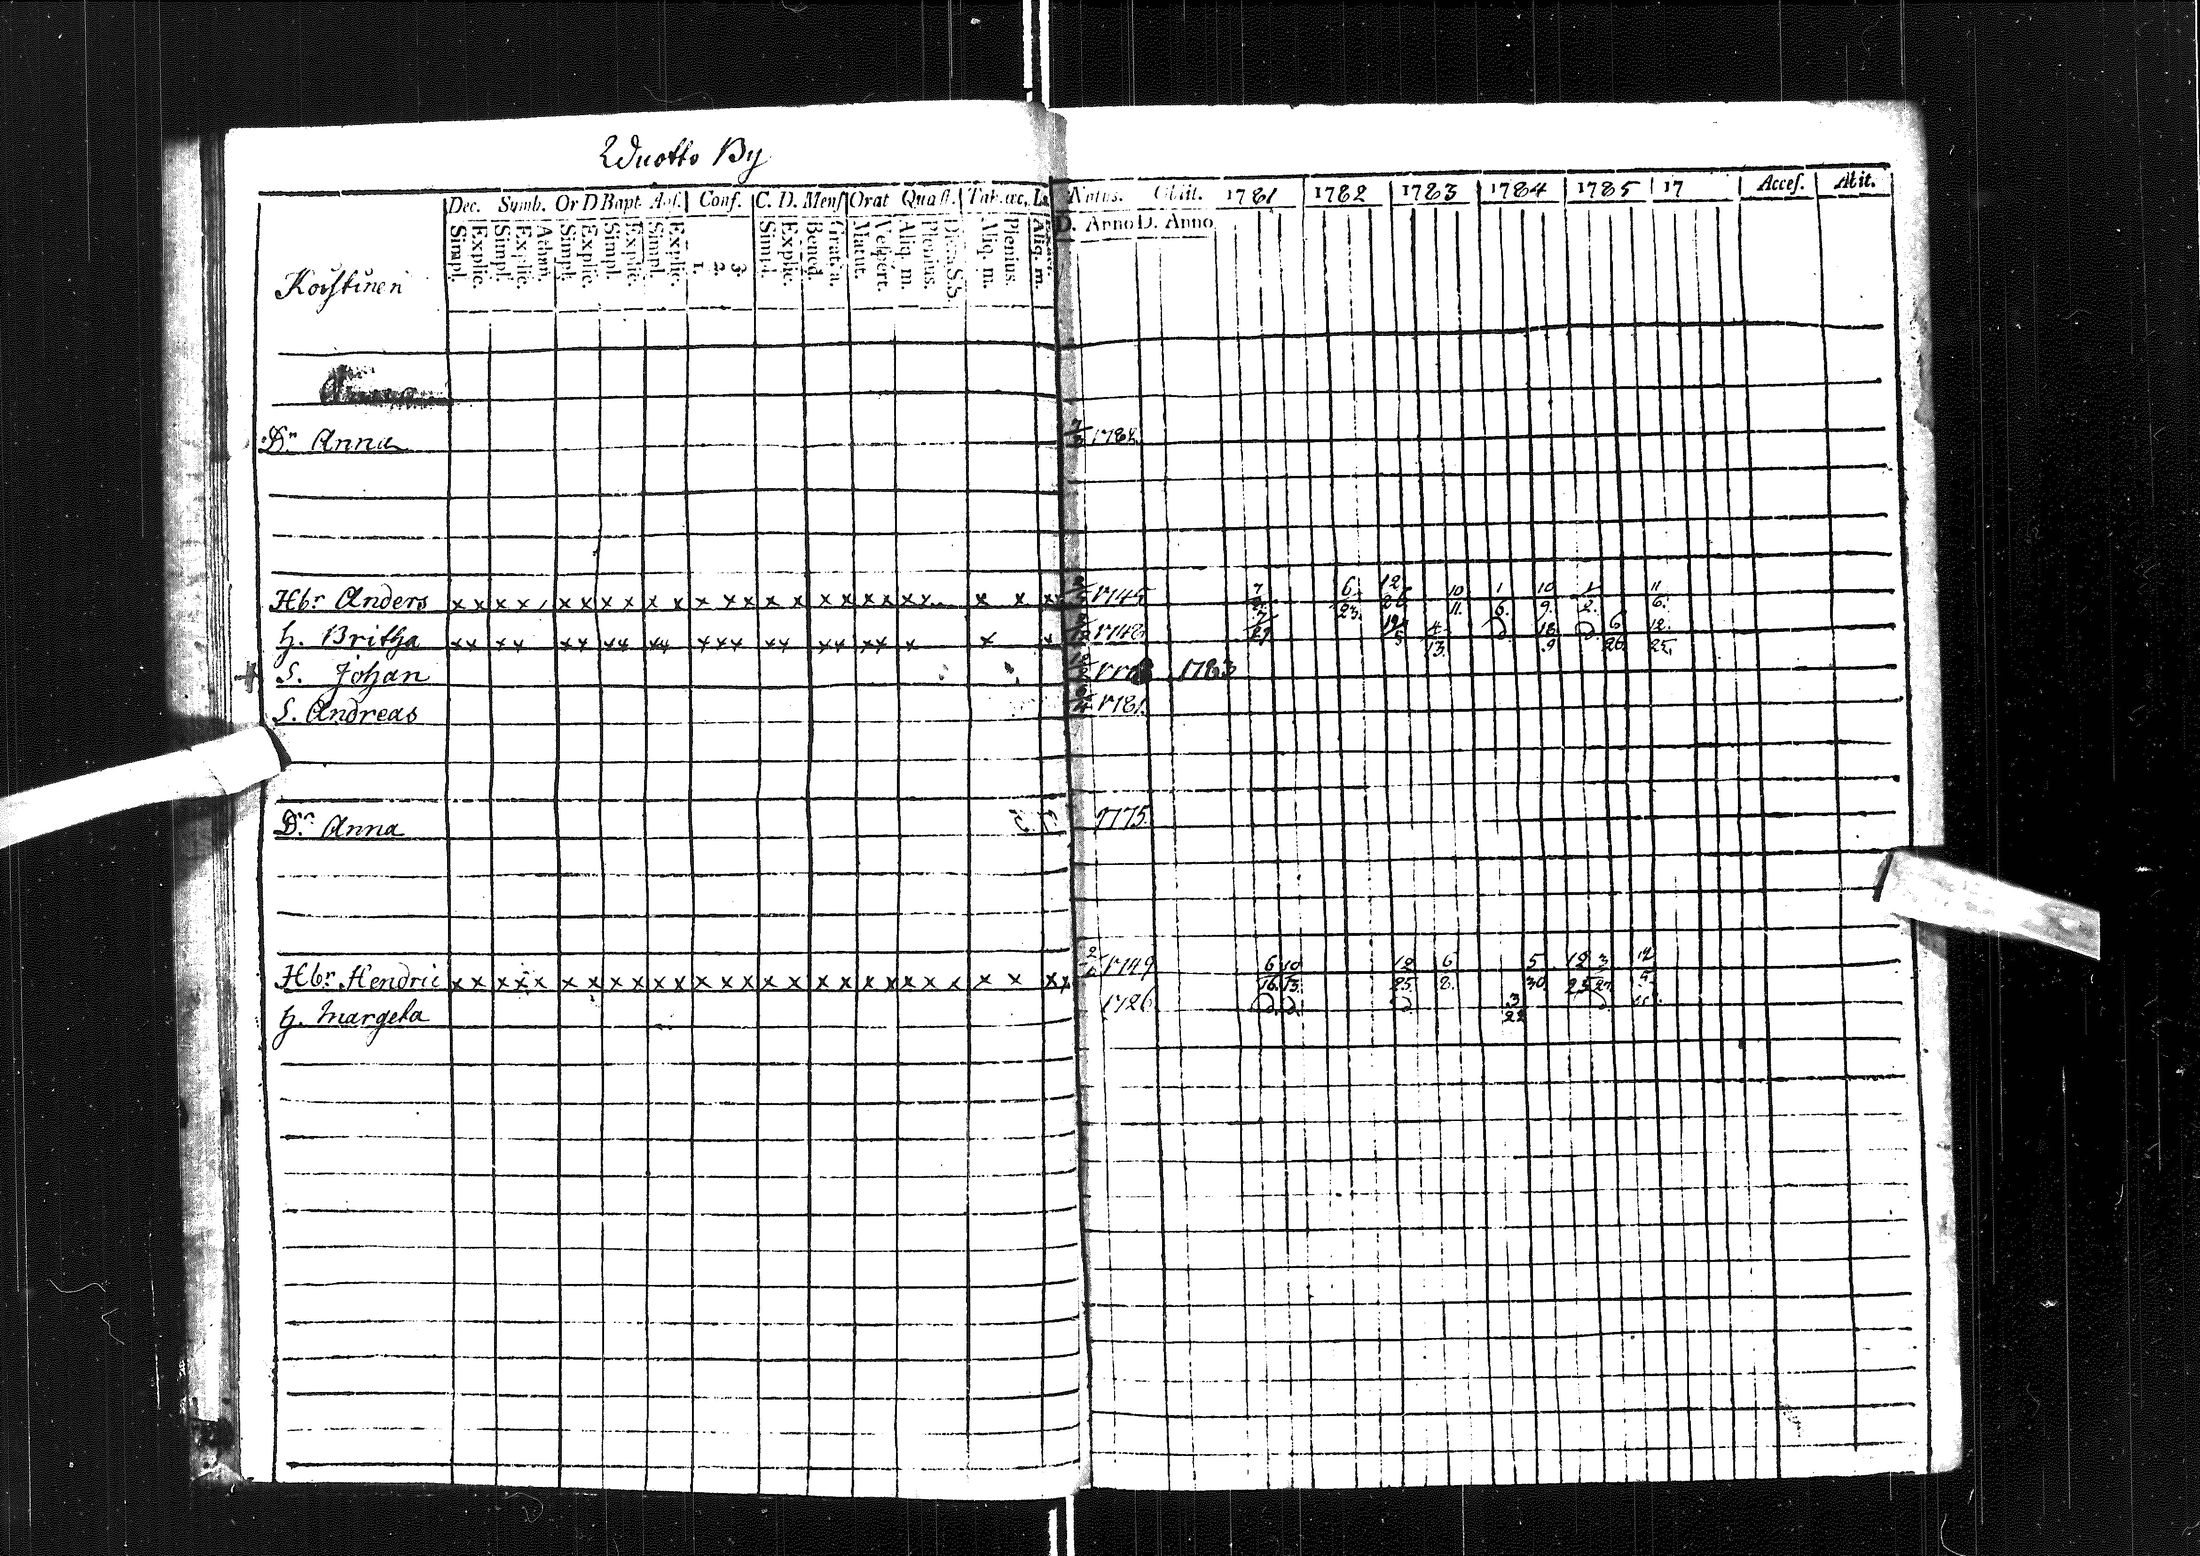 Wuotto By
Dec. Symb. Or D Bapt. Abs. Conf. C. D. Mens Orat Quæst. Tab. œc. Natus. Obiit. 1781 1782 1783 1784 1785 17 Acces. Abit.
Simpl. Explic. Simpl. Explic. Athan. Simpl. Explic. Simpl. Explic. Simpl. Explic. 1. 2. 3 Simpl. Explic. Bened. Gratia. Matut. Vespert. Aliq. m. Plenius. Dicta S.S. Aliq. m. Plenius. Aliq. m. D. Anno D. Anno
Korstinen
Dr. Anna 1782
Hbr Anders x x x x x x x x x x x x x x x x x x x x x x x x 1745 7 6 23. 12 10 11. 1 6. 10 9. 1 2. 11 6.
H. Britha x x x x x x x x x x x x x x x x x x x x x x x 1748 7 29 12 5 4 13. D. 18 9 D. 6 26. 12. 25.
+ S. Johan 1783
S. Andreas 1781.
Dr. Anna 1775.
Hbr. Hendric x x x x x x x x x x x x x x x x x x x x x x x x x x x 1749 6 16. 10 13. 12 25. 6 8. 5 30. 12 25 3 27. 12 5.
H. Margeta 1726. D. D. D 3 22 D.